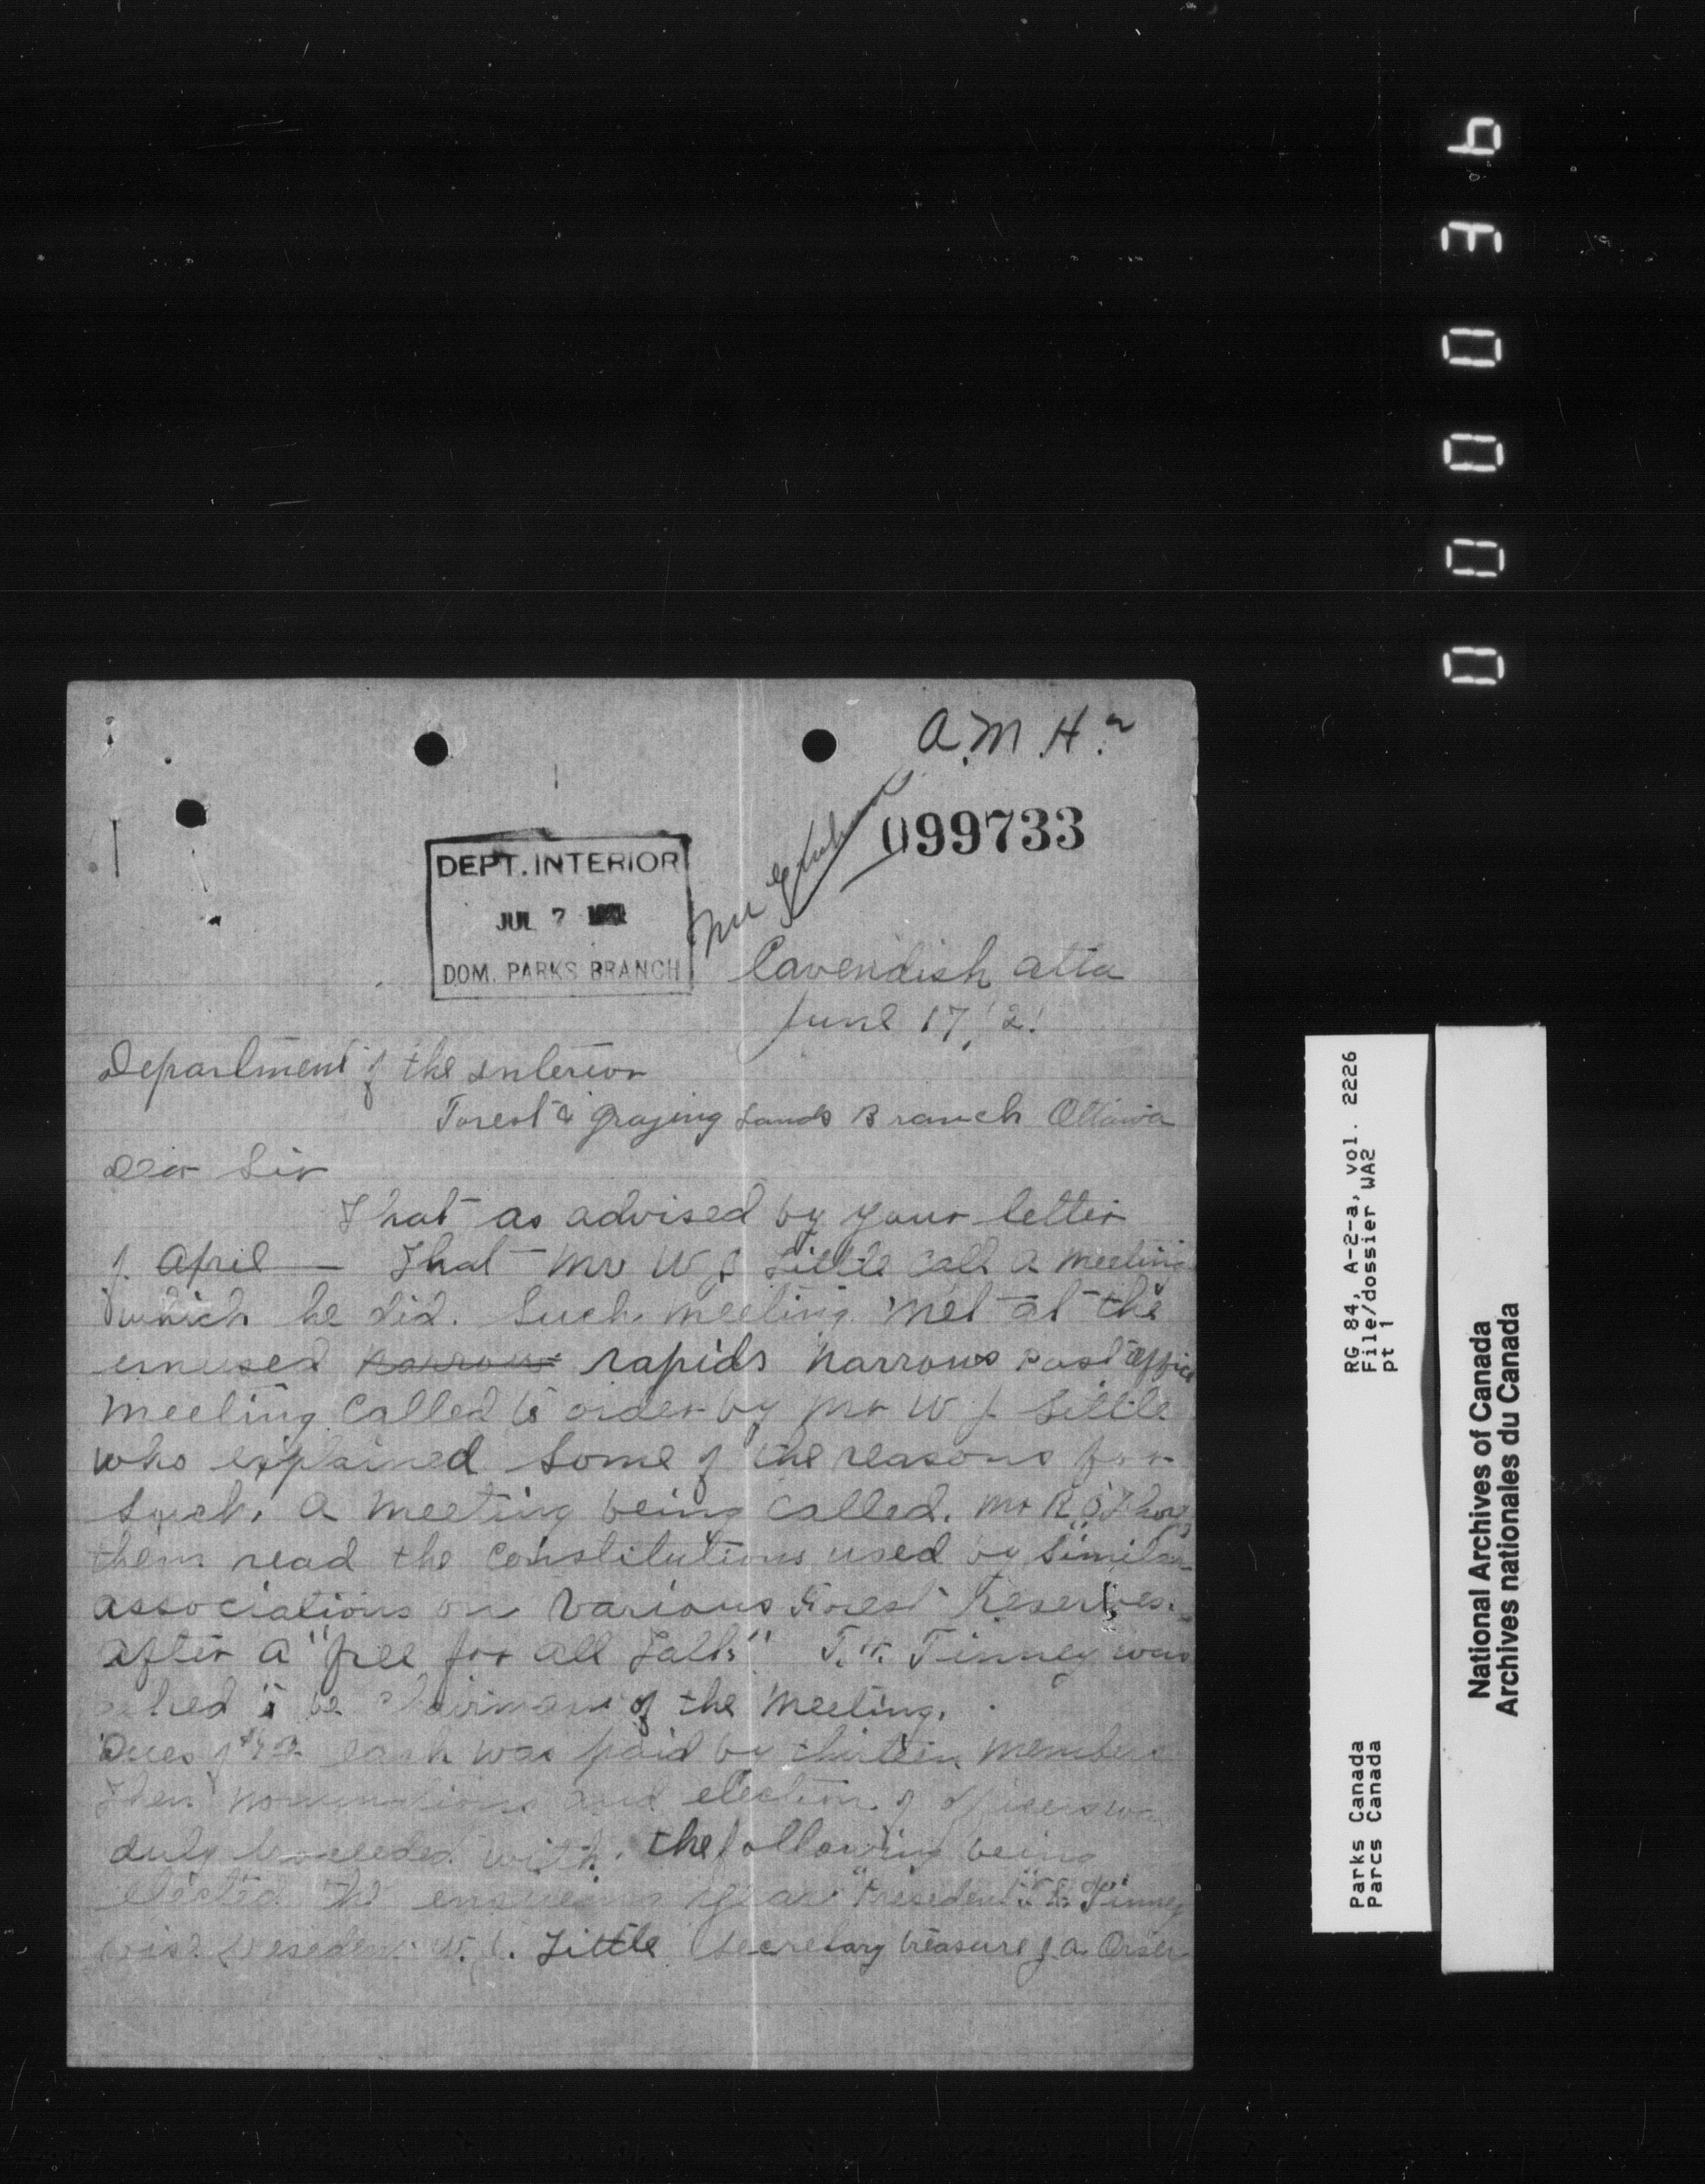 A.M.H.
099733
DEPT. INTERIOR
JUL 7 1921
DOM. PARKS BRANCH
Cavendish alta
June 17, '21
Department of the Interior
Forest & Grazing Lands Branch Ottawa
Dear Sir
That as advised by your letter
of April — That Mr W J Little call a meeting
which he did. Such meeting met at the
unused narrows rapids narrows Post office
meeting called to order by Mr W J Little
who explained some of the reasons for
such a meeting being called. Mr R
then read the constitutions used by similar
associations on various Forest Reserves.
After a "free for all Talk" T.H. Tinney was
asked to be Chairman of the meeting.
Dues of each was paid by thirteen members
Then nominations and election of officers was
duly proceeded with. the following being
elected the ensueing year President Tinney
vise president W. J. Little Secretary treasure J a Orser
000036
RG 84, A-2-a, vol. 2226
File/dossier WA2
pt 1
Parks Canada
Parcs Canada
National Archives of Canada
Archives nationales du Canada